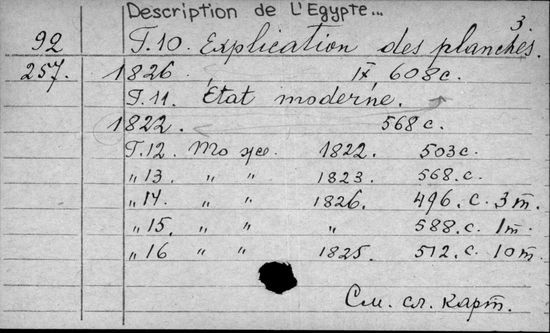 Description de L'Egypte...
3
92 Т.10. Explication des planches.
257. 1826 IX 608с.
Т.11. État moderne.
1822. 568 с.
Т.12. То же. 1822. 503с.
„ 13 „ „ 1823. 568.с.
„ 14. „ „ 1826. 496. с. 3 т.
„ 15. „ „ „ 588. с. 1 т.
„ 16 „ „ 1825. 512. с. 10 т.
См. сл. карт.